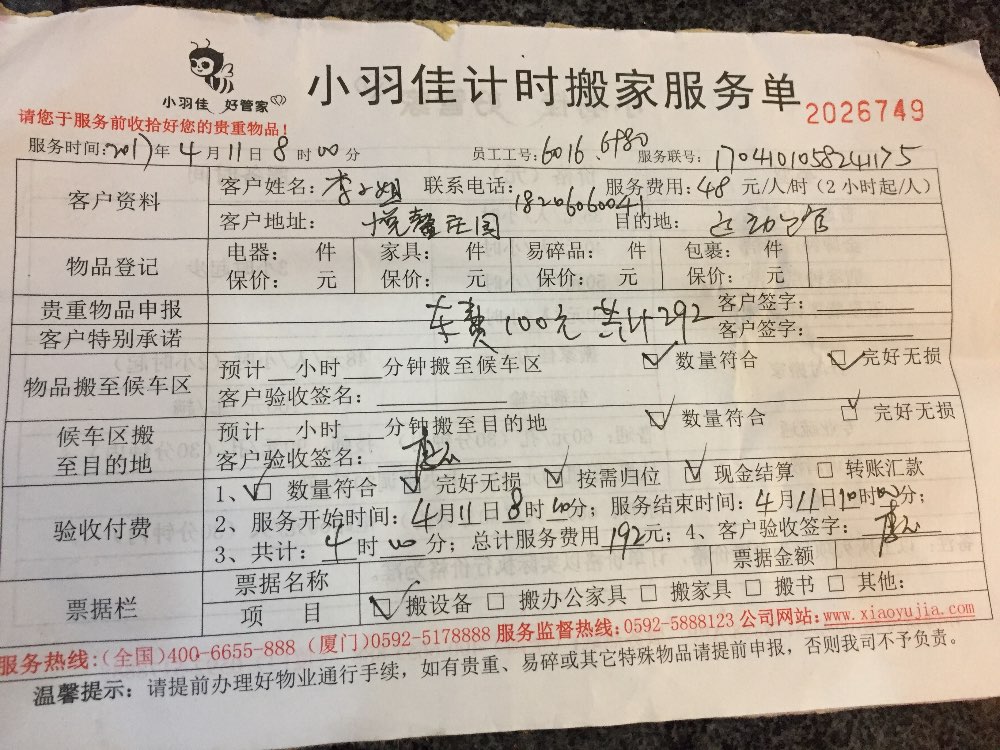 小羽佳 好管家
小羽佳计时搬家服务单
2026749
请您于服务前收拾好您的贵重物品！
服务时间:2017年 4 月 11 日 8 时 00 分 员工工号:6016、6980 服务联号: 170410105824175
客户资料
客户姓名: 李小姐 联系电话: 18206060041 服务费用: 48 元/人/时（2 小时起/人）
客户地址: 悦鳌庄园 目的地:
物品登记
电器: 件 家具: 件 易碎品: 件 包裹: 件
保价: 元 保价: 元 保价: 元 保价: 元
贵重物品申报
车费100元 共计292
客户签字:
客户特别承诺
客户签字:
物品搬至候车区
预计__小时 __分钟搬至候车区 数量符合 完好无损
客户验收签名:
候车区搬至目的地
预计__小时 __分钟搬至目的地 数量符合 完好无损
客户验收签名:
验收付费
1、□ 数量符合 完好无损 按需归位 现金结算 □ 转账汇款
2、服务开始时间: 4月11日8时00分; 服务结束时间: 4月11日10时00分;
3、共计: 4 时 00 分; 总计服务费用 192元; 4、客户验收签字:
票据栏
票据名称 票据金额
项 目 搬设备 □ 搬办公家具 □ 搬家具 □ 搬书 □ 其他:
服务热线:(全国)400-6655-888 (厦门)0592-5178888 服务监督热线:0592-5888123 公司网站:www.xiaoyujia.com
温馨提示: 请提前办理好物业通行手续，如有贵重、易碎或其它特殊物品请提前申报，否则我司不予负责。